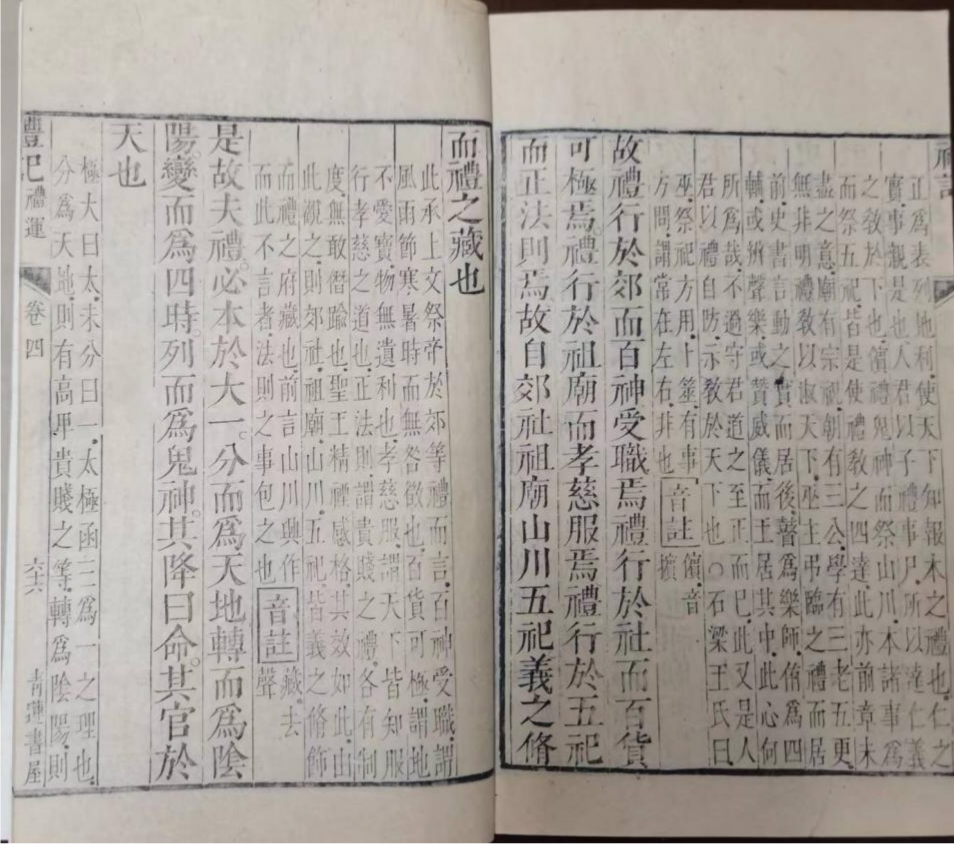 禮記
正爲表列地利使天下知報本之禮也仁之
實事親是也人君以子禮事尸所以達仁義
之教於下也儐禮鬼神而祭山川本諸事爲
而祭五祀皆是使禮教之四達此亦前章未
盡之意廟有宗祝朝有三公學有三老五更
無非明禮教以淑天下巫主弔臨之禮而居
前史書言動之實而居後瞽爲樂師侑爲四
輔或辨聲樂或贊威儀而王居其中此心何
所爲哉不過守君道之至正而已此又是人
君以禮自防示教於天下也○石梁王氏曰
巫祭祀方用卜筮有事
方問謂常在左右非也
音註
儐音
擯
故禮行於郊而百神受職焉禮行於社而百貨
可極焉禮行於祖廟而孝慈服焉禮行於五祀
而正法則焉故自郊社祖廟山川五祀義之脩
而禮之藏也
此承上文祭帝於郊等禮而言百神受職謂
風雨節寒暑時而無咎欲也百貨可極謂地
不愛寶物無遺利也孝慈服謂天下皆知服
行孝慈之道也正法則謂貴賤之禮各有制
度無敢僭踰也聖王精禋感格其效如此由
此觀之則郊社祖廟山川五祀皆義之脩飾
而禮之府藏也前言山川興作
而此不言者法則之事包之也
音註
藏去
聲
是故夫禮必本於大一分而爲天地轉而爲陰
陽變而爲四時列而爲鬼神其降曰命其官於
天也
極大曰太未分曰一太極函三爲一之理也
分爲天地則有高卑貴賤之等轉爲陰陽則
禮記 禮運 卷四 六十六 青蓮書屋